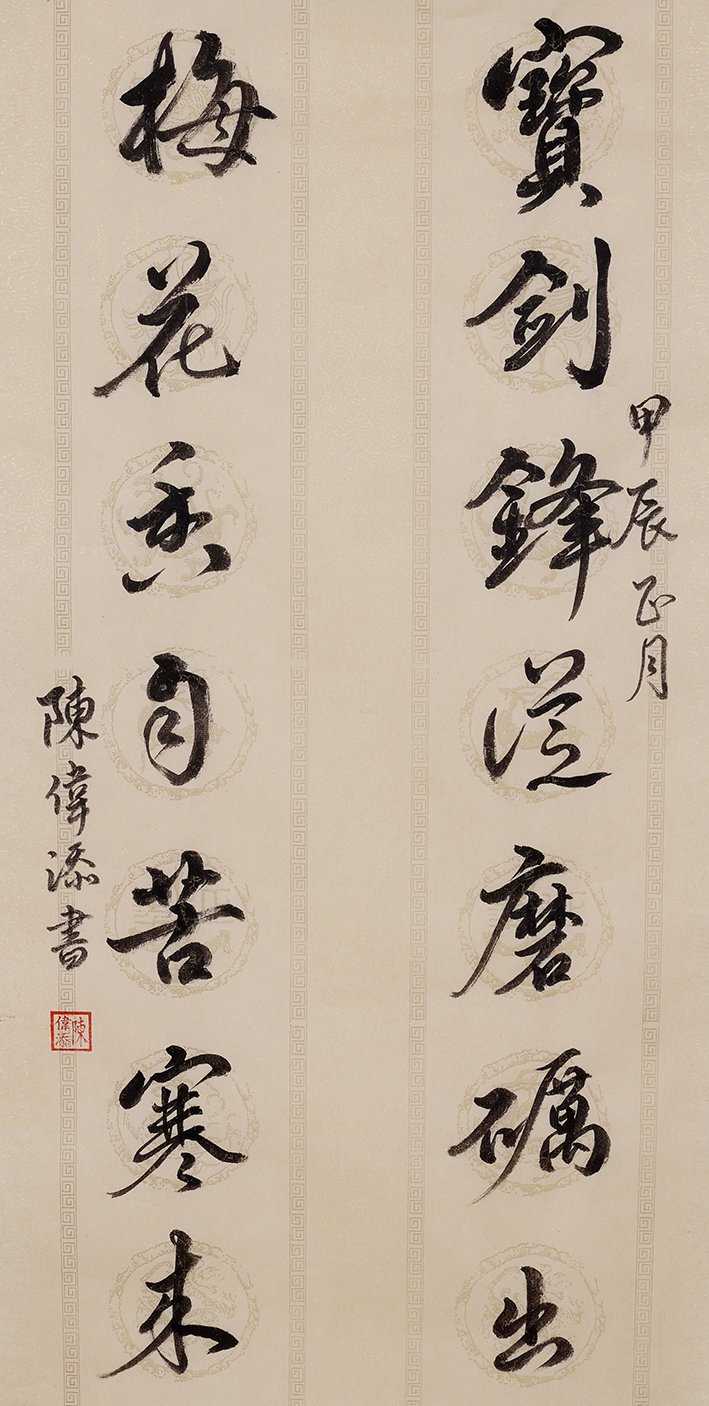 寶劍鋒從磨礪出
甲辰正月
梅花香自苦寒來
陳偉添書
陳偉添